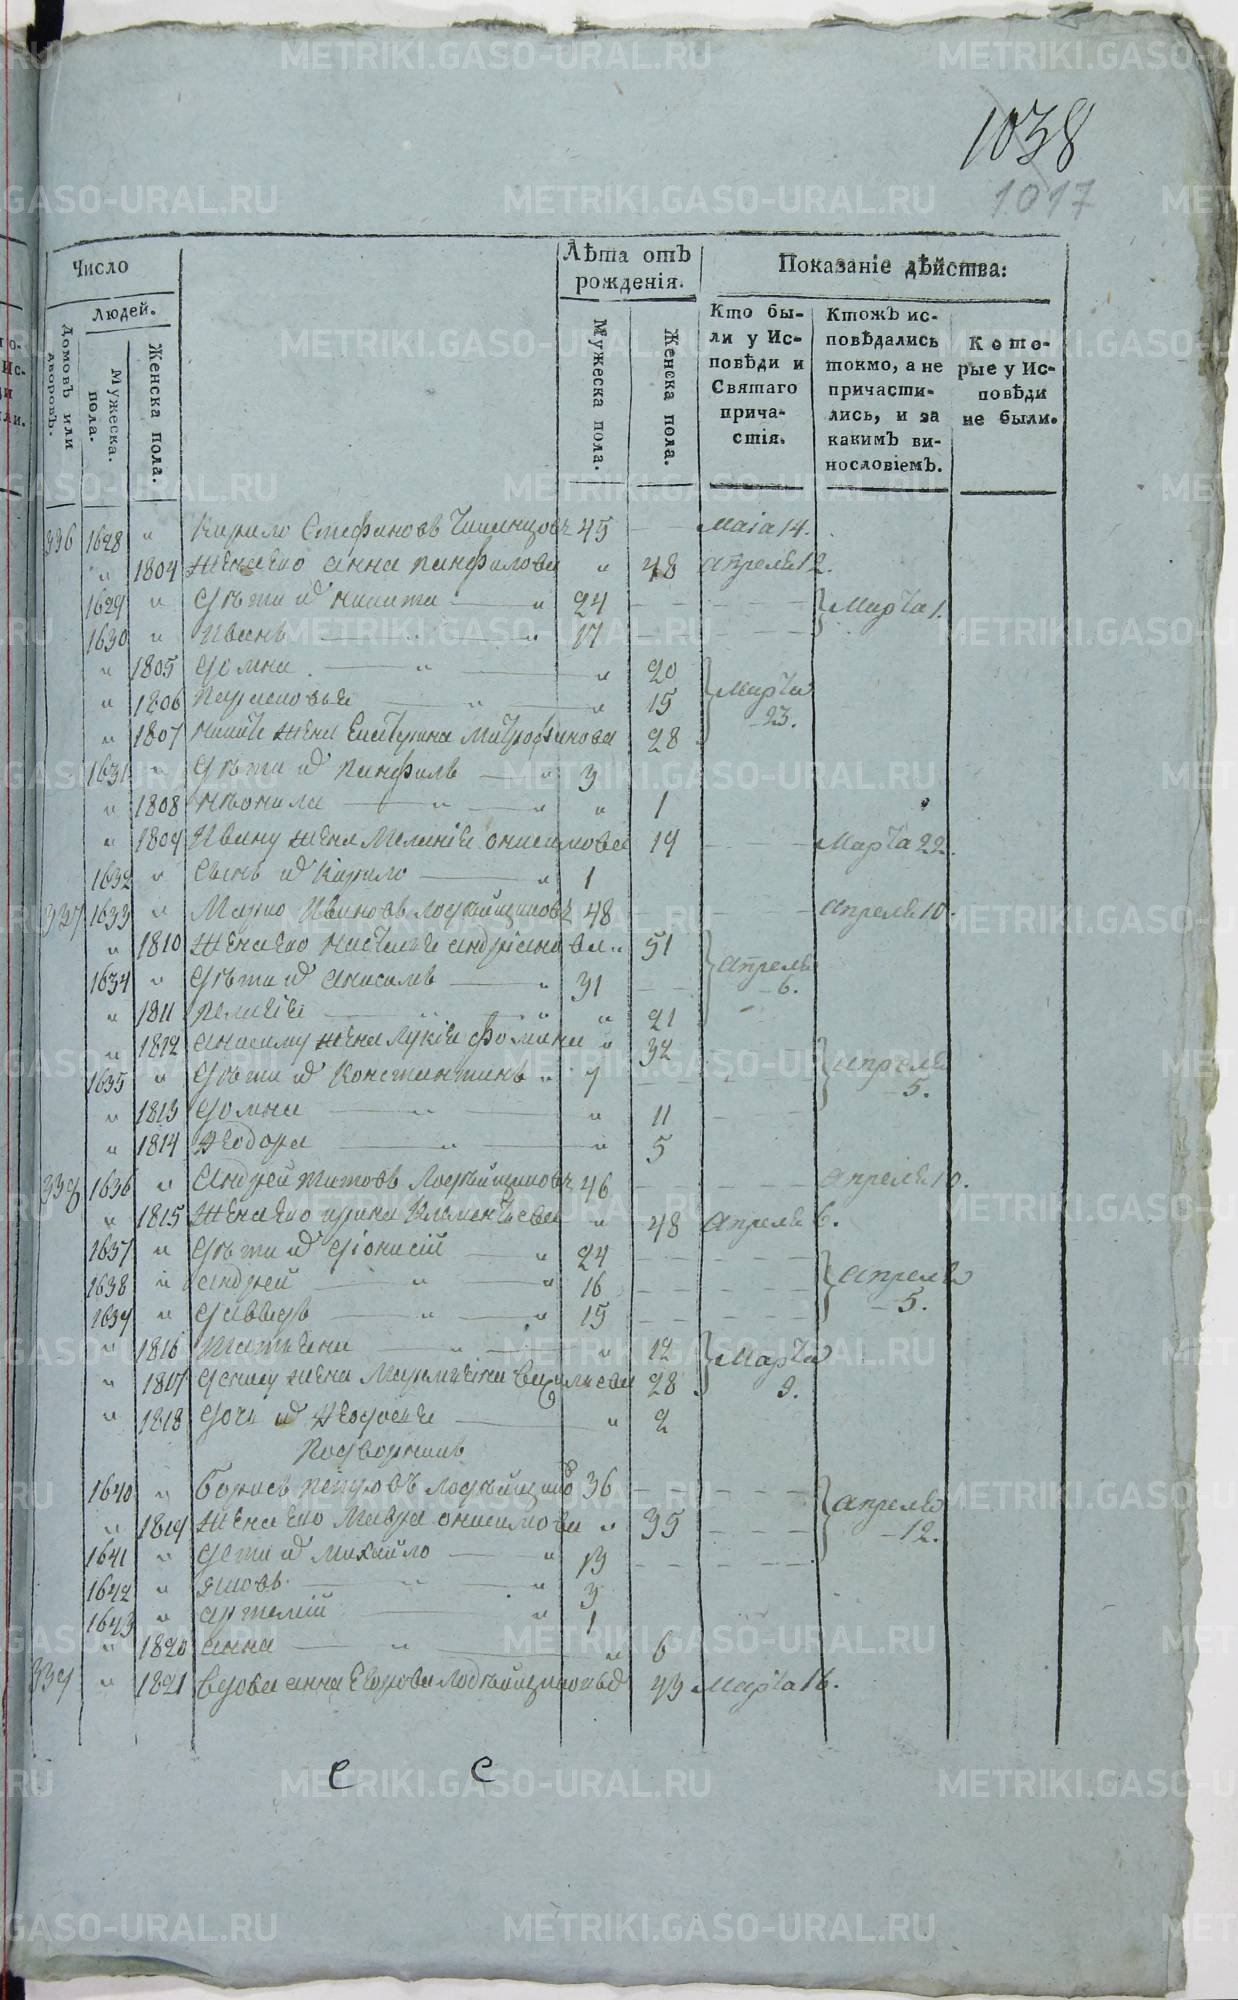 1038
1017
Число
Людей.
Домовъ или дворовъ.
Мужеска. пола.
Женска пола.
Лѣта отъ рожденія.
Мужеска пола.
Женска пола.
Показаніе дѣйства:
Кто были у Исповѣди и Святаго причастія.
Ктожъ исповѣдались токмо, а не причастились, и за какимъ винословіемъ.
Которые у Исповѣди не были.
336 1628 " Кирило Стефановъ 45 — Маіа 14.
" 1804 жена его Анна Панфилова " 48 Апреля 12.
1629 " Дѣти их Никита — " 24
1630 " Иванъ — " 17
Марта 1.
" 1805 Домна — " 20
" 1806 Парасковья — " 15
" 1807 Никите жена Екатерина Митрофанова 28
Марта 23.
1631 " Дѣти их Панфилъ — " 3
" 1808 Неонила — " " 1
" 1809 Ивану жена Меланія Онисимова 19 Марта 22.
1632 " Сынъ их Кирило — " 1
337 1633 " Марко Ивановъ 48 Апреля 10.
" 1810 жена его Наталья Андріанова " 51
1634 " Дѣти их Анисимъ — " 31
" 1811 Пелагія — " 21
Апреля 6.
" 1812 Анисиму жена Лукія Фомина " 32
1635 " Дѣти их Константинъ " 7
" 1813 Домна — " 11
Апреля 5.
" 1814 Ѳеодора — " 5
338 1636 " Андрей Титовъ 46 Апреля 10.
" 1815 жена его Ирина Климентьева " 48 Апреля 6.
1637 " Дѣти их Діонисій — " 24
1638 " Андрей — " 16
1639 " Давыдъ — " 15
Апреля 5.
" 1816 Татьяна — " 12
" 1817 Денису жена Марѳа Васильева 28
Марта 9.
" 1818 Дочь их Ѳеодосія — " 2
Подворникъ
1640 " Борисъ Петровъ 36
" 1819 жена его Мавра Онисимова " 35
1641 " Дети их Михайло — " 13
Апреля 12.
1642 " Яковъ — " 3
1643 " Артемій — " 1
" 1820 Анна — " 6
339 " 1821 Вдова Анна Егорова 43 Марта 16.
С С
METRIKI.GASO-URAL.RU